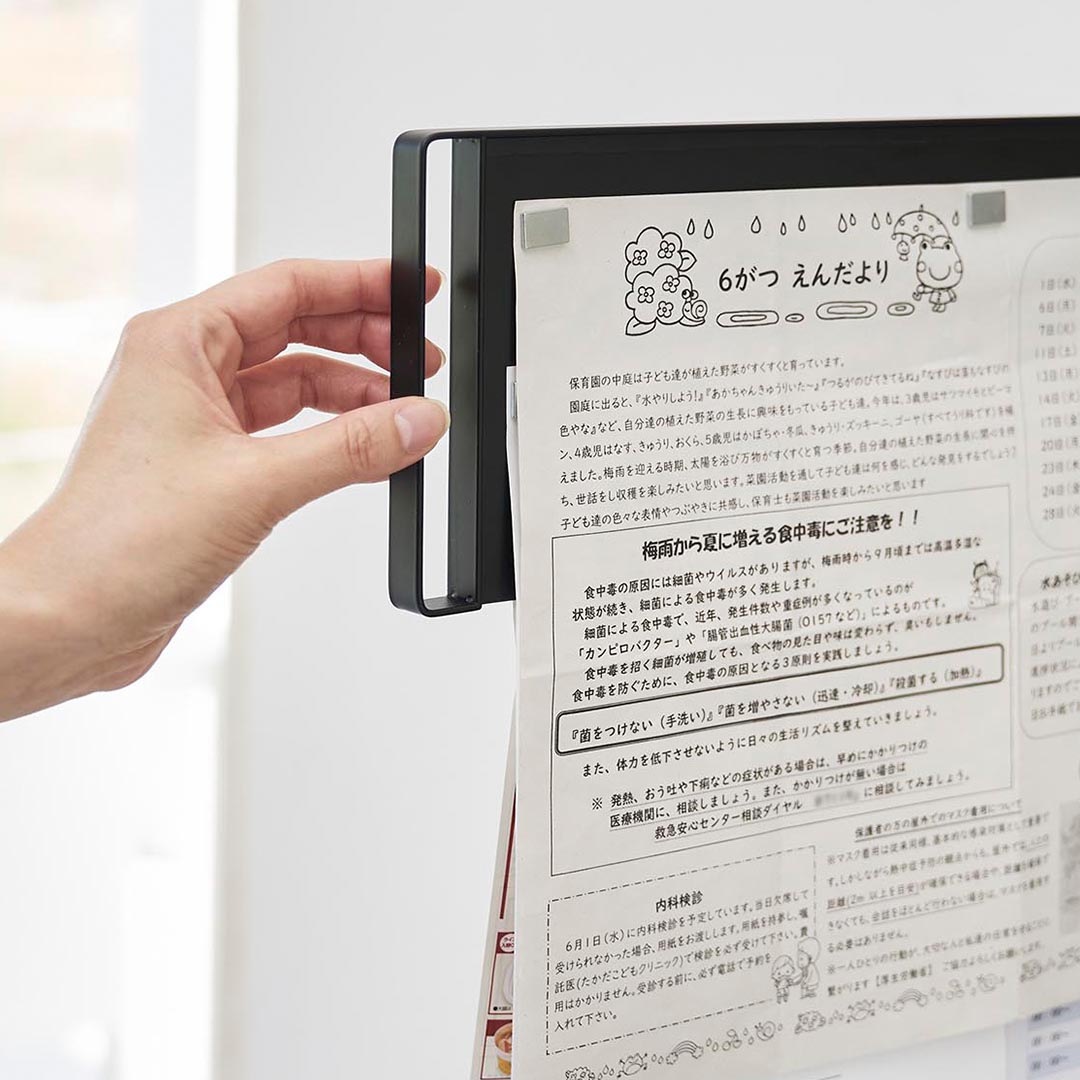 6がつ えんだより
保育園の中庭は子ども達が植えた野菜がすくすくと育っています。
園庭に出ると、『水やりしよう!』『あかちゃんきゅうりいた〜』『つるがのびてきてるね』『なすびは葉もなすびの
色やな』など、自分達の植えた野菜の生長に興味をもっている子ども達。今年は、3歳児はサツマイモとピーマ
ン、4歳児はなす、きゅうり、おくら、5歳児はかぼちゃ・冬瓜、きゅうり・ズッキーニ、ゴーヤ(すべてうり科です)を植
えました。梅雨を迎える時期、太陽を浴び万物がすくすくと育つ季節。自分達の植えた野菜の生長に関心を持
ち、世話をし収穫を楽しみたいと思います。菜園活動を通して子ども達は何を感じ、どんな発見をするでしょう?
子ども達の色々な表情やつぶやきに共感し、保育士も菜園活動を楽しみたいと思います
梅雨から夏に増える食中毒にご注意を!!
食中毒の原因には細菌やウイルスがありますが、梅雨時から9月頃までは高温多湿な
状態が続き、細菌による食中毒が多く発生します。
細菌による食中毒で、近年、発生件数や重症例が多くなっているのが
「カンピロバクター」や「腸管出血性大腸菌(O157など)」によるものです。
食中毒を招く細菌が増殖しても、食べ物の見た目や味は変わらず、臭いもしません。
食中毒を防ぐために、食中毒の原因となる3原則を実践しましょう。
『菌をつけない(手洗い)』『菌を増やさない(迅速・冷却)』『殺菌する(加熱)』
また、体力を低下させないように日々の生活リズムを整えていきましょう。
※ 発熱、おう吐や下痢などの症状がある場合は、早めにかかりつけの
医療機関に、相談しましょう。また、かかりつけが無い場合は
救急安心センター相談ダイヤル に相談してみましょう。
内科検診
6月1日(水)に内科検診を予定しています。当日欠席して
受けられなかった場合、用紙をお渡しします。用紙を持参し、嘱
託医(たかだこどもクリニック)で検診を必ず受けて下さい。費
用はかかりません。受診する前に、必ず電話で予約を
入れて下さい。
保護者の方の屋外でのマスク着用について
※マスク着用は従来同様、基本的な感染対策として重要で
す。しかしながら熱中症予防の観点からも、屋外では、人との
距離(2m 以上を目安)が確保できる場合や、距離が確保で
きなくても、会話をほとんど行わない場合は、マスクを着用す
る必要はありません。
※一人ひとりの行動が、大切な人と私達の日常を守ることに
繋がります【厚生労働省】 ご協力よろしくお願いします。
1日(水)
6日(月)
7日(火)
11日(土)
13日(月)
14日(火)
17日(金)
20日(月)
23日(木)
24日(金)
28日(火)
水あそび